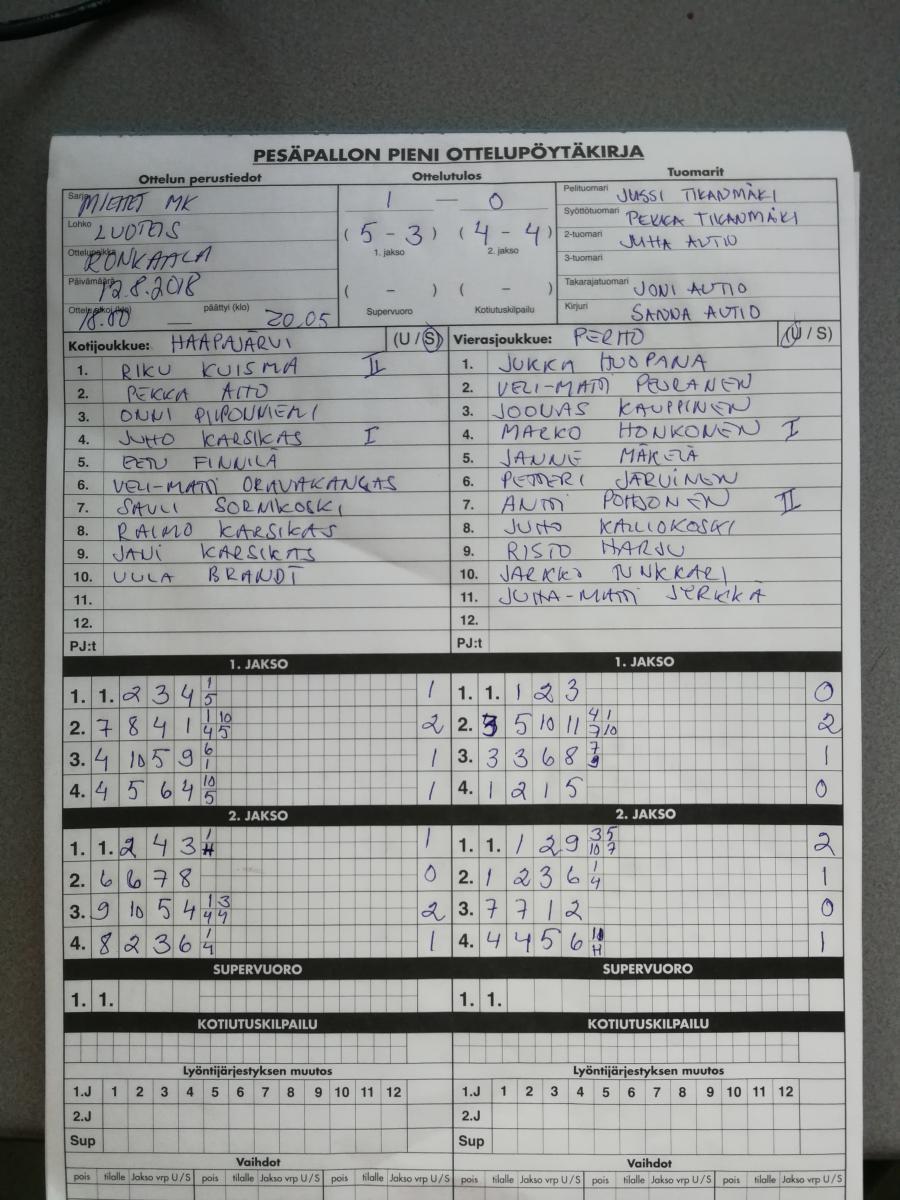 PESÄPALLON PIENI OTTELUPÖYTÄKIRJA
Ottelun perustiedot Ottelutulos Tuomarit
Sarja MIEHET MK
Lohko LUOTEIS
Ottelupaikka RONKAALA
Päivämäärä 12.8.2018
Ottelu alkoi (klo) 18.00 — päättyi (klo) 20.05
1 — 0
( 5 - 3 ) ( 4 - 4 )
1. jakso 2. jakso
( - ) ( - )
Supervuoro Kotiutuskilpailu
Pelituomari JUSSI TIKANMÄKI
Syöttötuomari PEKKA TIKANMÄKI
2-tuomari JUHA AUTIO
3-tuomari
Takarajatuomari JONI AUTIO
Kirjuri SANNA AUTIO
Kotijoukkue: HAAPAJÄRVI (U / S)
1. RIKU KUISMA II
2. PEKKA AHO
3. ONNI PIIPONNIEMI
4. JUHO KARSIKAS I
5. EETU FINNILÄ
6. VELI-MATTI ORAVAKANGAS
7. SAULI SORNIKOSKI
8. RAIMO KARSIKAS
9. JANI KARSIKAS
10. UULA BRANDT
11.
12.
PJ:t
Vierasjoukkue: PERHO (U / S)
1. JUKKA HUOPANA
2. VELI-MATTI PEURANEN
3. JOONAS KAUPPINEN
4. MARKO HONKONEN I
5. JANNE MÄKELÄ
6. PETTERI JÄRVINEN
7. ANTTI POHJONEN II
8. JUHO KALLIOKOSKI
9. RISTO HARJU
10. JARKKO TUNKKARI
11. JUHA-MATTI JYRKKÄ
12.
PJ:t
1. JAKSO
1. 1. 2 3 4 1/5 1
2. 7 8 4 1 1/4 10/5 2
3. 4 10 5 9 6/1 1
4. 4 5 6 4 10/5 1
2. JAKSO
1. 1. 2 4 3 1/4 1
2. 6 6 7 8 0
3. 9 10 5 4 1/4 3/4 2
4. 8 2 3 6 1/4 1
SUPERVUORO
1. 1.
KOTIUTUSKILPAILU
Lyöntijärjestyksen muutos
1.J 1 2 3 4 5 6 7 8 9 10 11 12
2.J
Sup
Vaihdot
pois tilalle Jakso vrp U/S pois tilalle Jakso vrp U/S
1. JAKSO
1. 1. 1 2 3 0
2. 3 5 10 11 4/7 1/10 2
3. 3 3 6 8 7/9 1
4. 1 2 1 5 0
2. JAKSO
1. 1. 1 2 9 3/10 5/7 2
2. 1 2 3 6 1/4 1
3. 7 7 1 2 0
4. 4 4 5 6 1
SUPERVUORO
1. 1.
KOTIUTUSKILPAILU
Lyöntijärjestyksen muutos
1.J 1 2 3 4 5 6 7 8 9 10 11 12
2.J
Sup
Vaihdot
pois tilalle Jakso vrp U/S pois tilalle Jakso vrp U/S